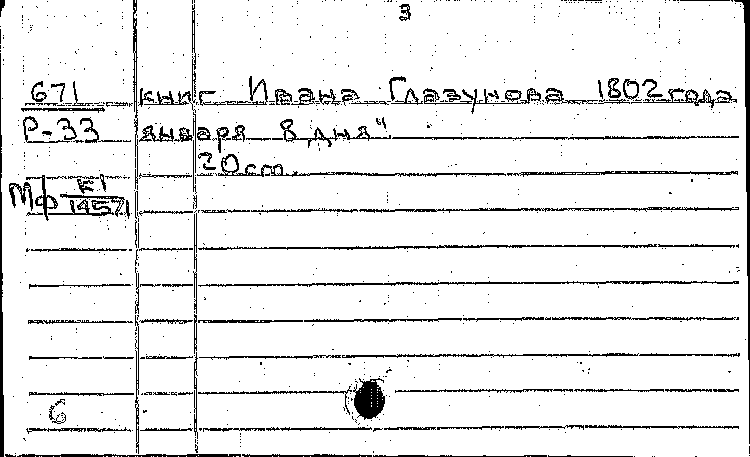 3
671 книг Ивана Глазунова 1802 года
Р-33 января 8 дня"
20 cm.
Мф К1
14571
6